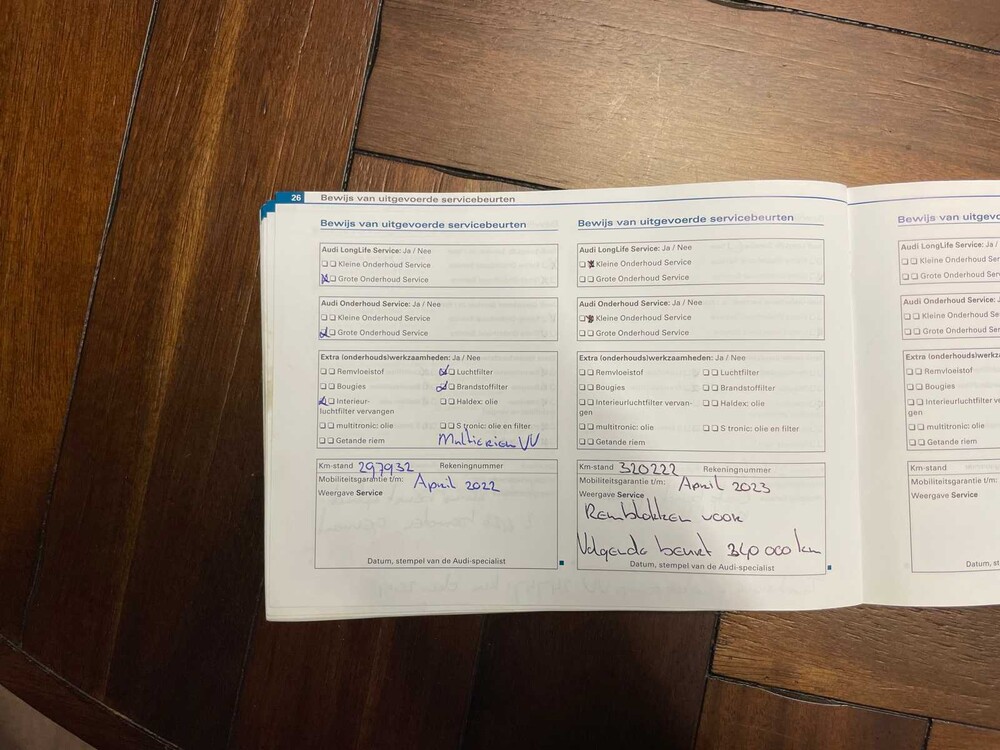 26 Bewijs van uitgevoerde servicebeurten
Bewijs van uitgevoerde servicebeurten
Audi LongLife Service: Ja / Nee
Kleine Onderhoud Service
Grote Onderhoud Service
Audi Onderhoud Service: Ja / Nee
Kleine Onderhoud Service
Grote Onderhoud Service
Extra (onderhouds)werkzaamheden: Ja / Nee
Remvloeistof Luchtfilter
Bougies Brandstoffilter
Interieur- Haldex: olie
luchtfilter vervangen
multitronic: olie S tronic: olie en filter
Getande riem Multieriem VV
Km-stand 297932 Rekeningnummer
Mobiliteitsgarantie t/m: April 2022
Weergave Service
Datum, stempel van de Audi-specialist
Bewijs van uitgevoerde servicebeurten
Audi LongLife Service: Ja / Nee
Kleine Onderhoud Service
Grote Onderhoud Service
Audi Onderhoud Service: Ja / Nee
Kleine Onderhoud Service
Grote Onderhoud Service
Extra (onderhouds)werkzaamheden: Ja / Nee
Remvloeistof Luchtfilter
Bougies Brandstoffilter
Interieurluchtfilter vervan- Haldex: olie
gen
multitronic: olie S tronic: olie en filter
Getande riem
Km-stand 320222 Rekeningnummer
Mobiliteitsgarantie t/m: April 2023
Weergave Service
Remblokken voor
Volgende beurt 340 000 km
Datum, stempel van de Audi-specialist
Bewijs van uitgevo
Audi LongLife Service: Ja /
Kleine Onderhoud Servic
Grote Onderhoud Servic
Audi Onderhoud Service: J
Kleine Onderhoud Servi
Grote Onderhoud Servic
Extra (onderhouds)werkza
Remvloeistof
Bougies
Interieurluchtfilter verva
gen
multitronic: olie
Getande riem
Km-stand
Mobiliteitsgarantie t/m:
Weergave Service
Datum, st